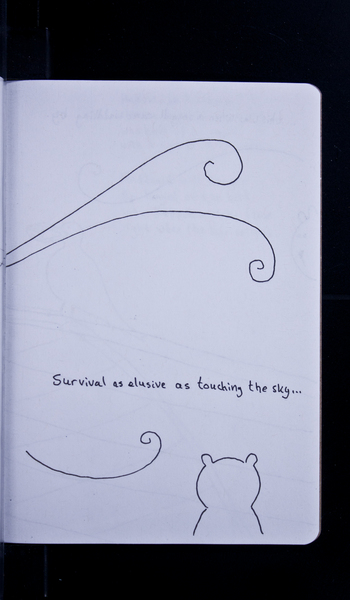 Survival as elusive as touching the sky...